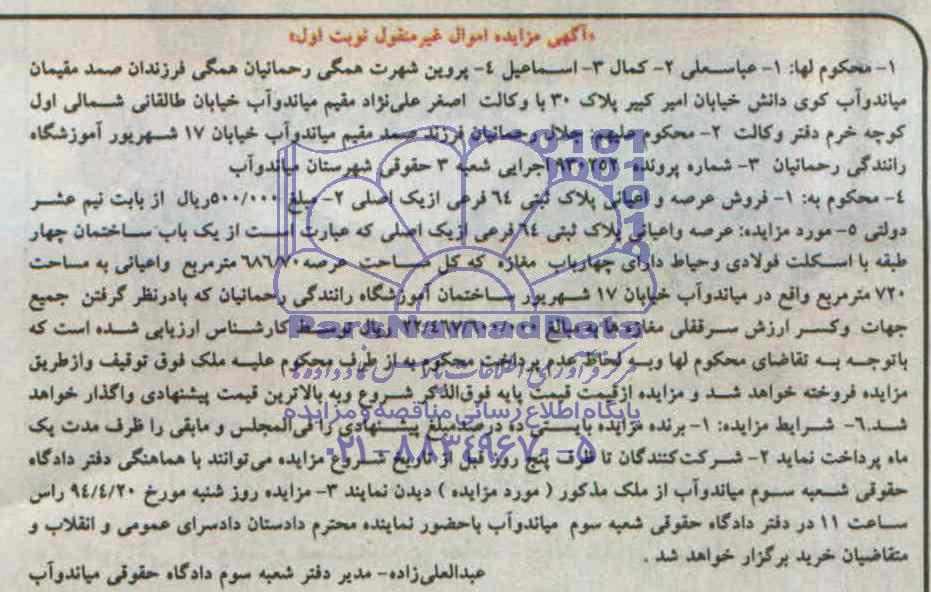 «آگهی مزایده اموال غیرمنقول نوبت اول»
۱- محکوم لها: ۱- عباسعلی ۲- کمال ۳- اسماعیل ٤- پروین شهرت همگی رحمانیان همگی فرزندان صمد مقیمان
میاندوآب کوی دانش خیابان امیر کبیر پلاک ۳۰ با وکالت اصغر علی‌نژاد مقیم میاندوآب خیابان طالقانی شمالی اول
کوچه خرم دفتر وکالت ۲- محکوم علیهم: جلال رحمانیان فرزند صمد مقیم میاندوآب خیابان ۱۷ شهریور آموزشگاه
رانندگی رحمانیان ۳- شماره پرونده ۹۳۰۲۵۲ اجرایی شعبه ۳ حقوقی شهرستان میاندوآب
٤- محکوم به: ۱- فروش عرصه و اعیانی پلاک ثبتی ٦٤ فرعی ازیک اصلی ۲- مبلغ ۵۰۰/۰۰۰ریال از بابت نیم عشر
دولتی ۵- مورد مزایده: عرصه واعیانی پلاک ثبتی ٦٤ فرعی ازیک اصلی که عبارت است از یک باب ساختمان چهار
طبقه با اسکلت فولادی وحیاط دارای چهارباب مغازه که کل مساحت عرصه ٦٨٦/٧٠ مترمربع واعیانی به مساحت
۷۲۰ مترمربع واقع در میاندوآب خیابان ۱۷ شهریور ساختمان آموزشگاه رانندگی رحمانیان که بادرنظر گرفتن جمیع
جهات وکسر ارزش سرقفلی مغازه‌ها به مبالغ ریال توسط کارشناس ارزیابی شده است که
باتوجه به تقاضای محکوم لها وبه لحاظ عدم پرداخت محکوم به از طرف محکوم علیه ملک فوق توقیف وازطریق
مزایده فروخته خواهد شد و مزایده ازقیمت قیمت پایه فوق‌الذکر شروع وبه بالاترین قیمت پیشنهادی واگذار خواهد
شد.٦- شرایط مزایده: ۱- برنده مزایده بایستی ده درصدمبلغ پیشنهادی را فی‌المجلس و مابقی را ظرف مدت یک
ماه پرداخت نماید ۲- شرکت‌کنندگان تا ظرف پنج روز قبل از تاریخ شروع مزایده می‌توانند با هماهنگی دفتر دادگاه
حقوقی شعبه سوم میاندوآب از ملک مذکور ( مورد مزایده ) دیدن نمایند ۳- مزایده روز شنبه مورخ ۹٤/٤/۲۰ راس
ساعت ۱۱ در دفتر دادگاه حقوقی شعبه سوم میاندوآب باحضور نماینده محترم دادستان دادسرای عمومی و انقلاب و
متقاضیان خرید برگزار خواهد شد .
عبدالعلی‌زاده- مدیر دفتر شعبه سوم دادگاه حقوقی میاندوآب
ParsNamadData
پایگاه اطلاع رسانی مناقصه و مزایده
۰۲۱-۸۸۳٤۹٦۷۰-۵